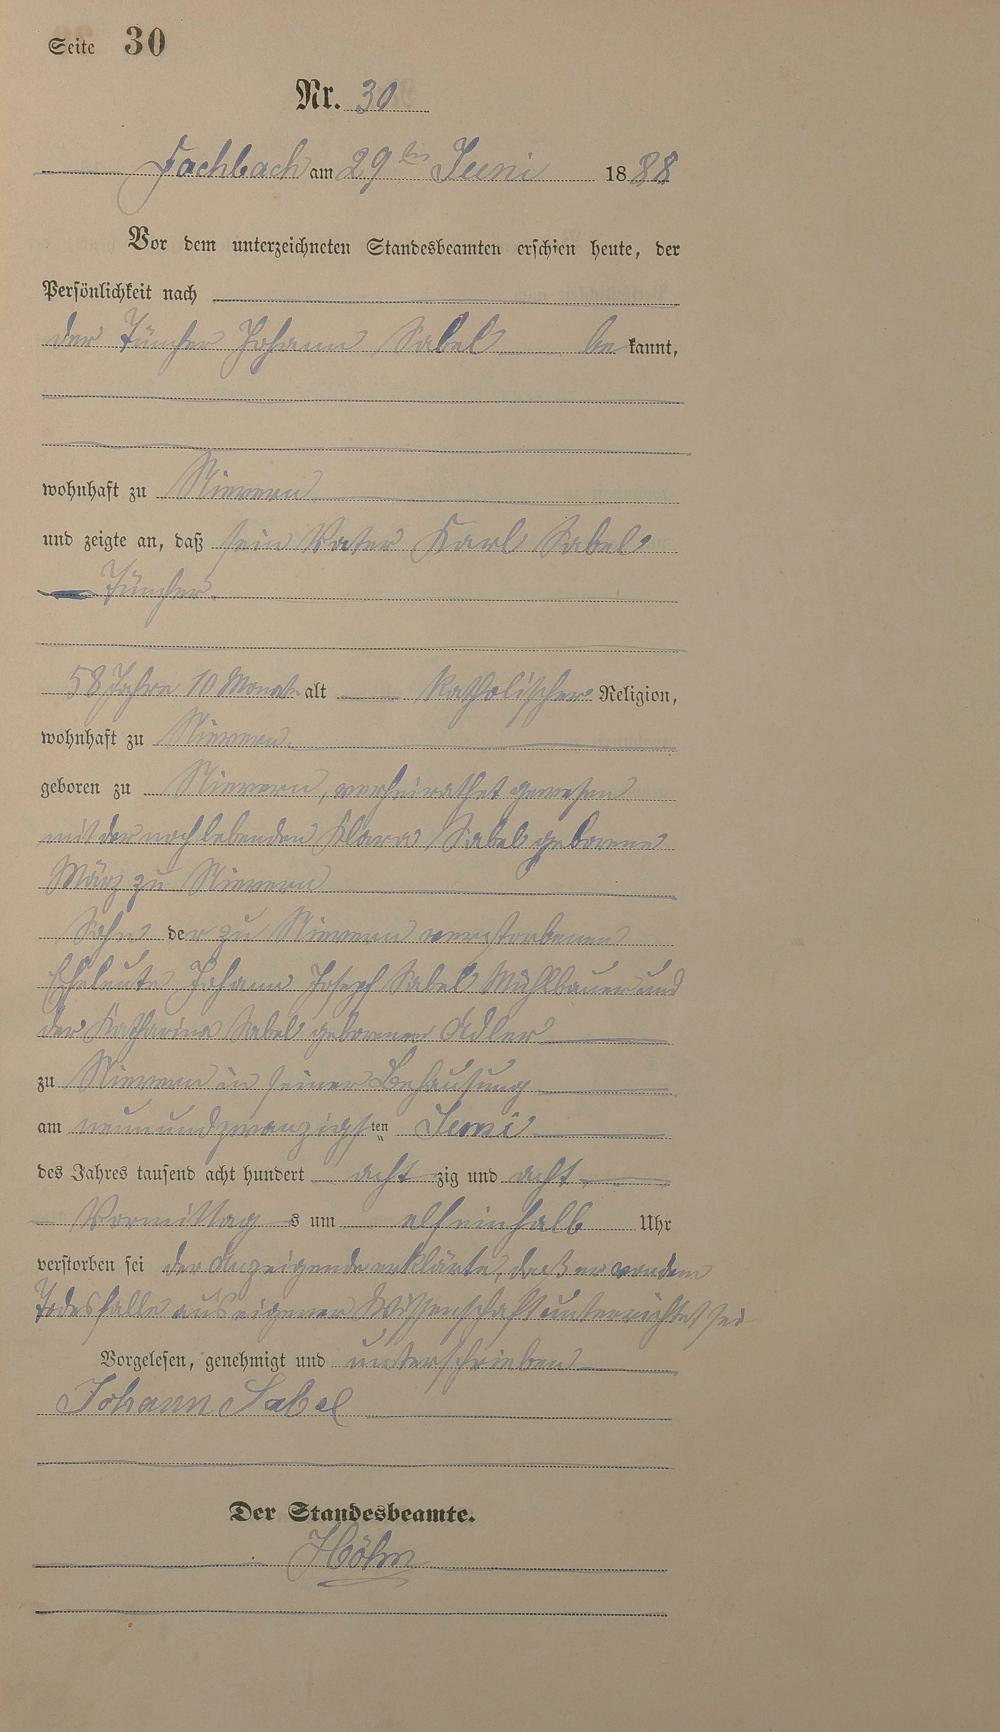 Seite 30
Nr. 30
Fachbach am 29ten Juni 1888
Vor dem unterzeichneten Standesbeamten erschien heute, der
Persönlichkeit nach
der Tüncher Johann Sabel bekannt,
wohnhaft zu Nievern
und zeigte an, daß sein Vater Karl Sabel
Tüncher.
58 Jahre 10 Monat alt katholischer Religion,
wohnhaft zu Nievern.
geboren zu Nievern, verheirathet gewesen
mit der noch lebenden Klara Sabel geborene
März zu Nievern
Sohn der zu Nievern verstorbenen
Eheleute Johann Joseph Sabel Mühlbauer und
der Katharina Sabel geborenen Adler
zu Nievern in seiner Behausung
am neunundzwanzigsten Juni
des Jahres tausend acht hundert achtzig und acht
Vormittags um elfeinhalb Uhr
verstorben sei der Anzeigende erklärte, daß er von dem
Todesfalle aus eigener Wissenschaft unterrichtet sei
Vorgelesen, genehmigt und unterschrieben
Johann Sabel
Der Standesbeamte.
Höhn